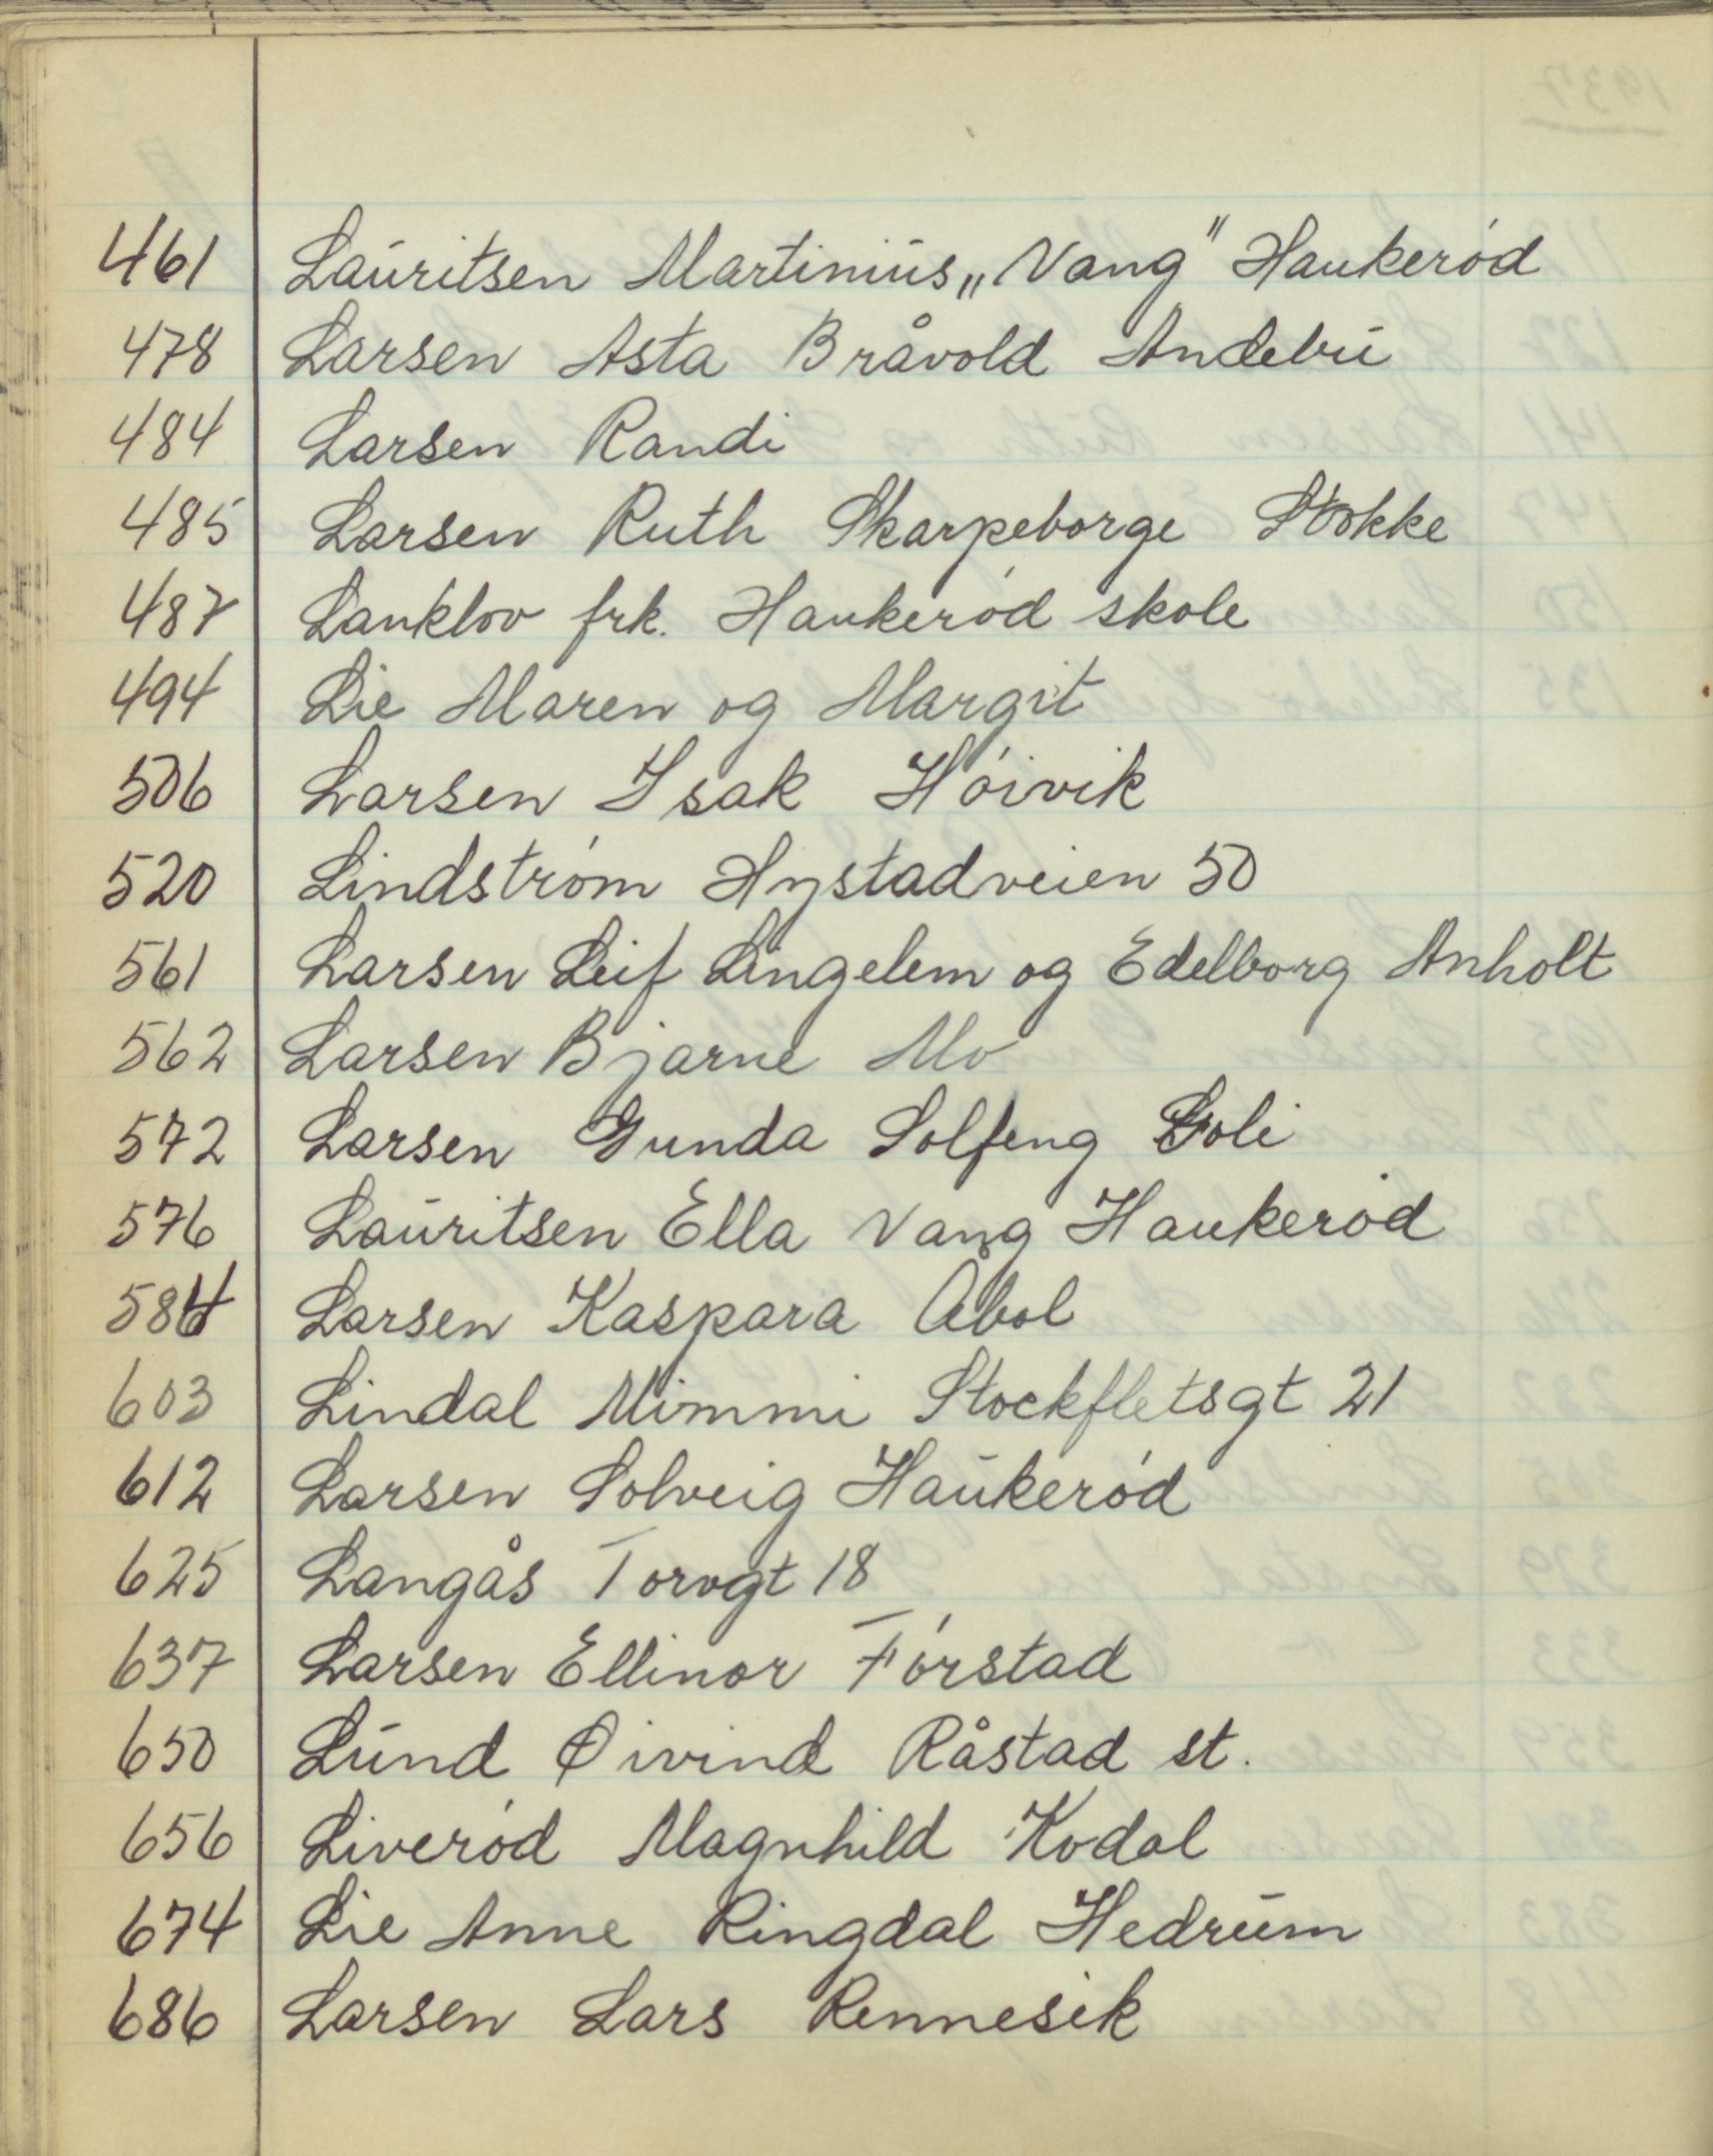 461 Lauritsen Martinius „Vang" Haukerød
478 Larsen Asta Bråvold Andebu
484 Larsen Randi
485 Larsen Ruth Skarpeborge Stokke
487 Lanklov frk. Haukerød skole
494 Lie Maren og Margit
506 Larsen Isak Høivik
520 Lindstrøm Hystadveien 50
561 Larsen Leif Lingelem og Edelborg Anholt
562 Larsen Bjarne Mo
572 Larsen Gunda Solfeng Goli
576 Lauritsen Ella Vang Haukerød
584 Larsen Kaspara Åbol
603 Lindal Mimmi Stockfletsgt 21
612 Larsen Solveig Haukerød
625 Langås Torvgt 18
637 Larsen Ellinor Førstad
650 Lund Øivind Råstad st.
656 Liverød Magnhild Kodal
674 Lie Anne Ringdal Hedrum
686 Larsen Lars Rennesik